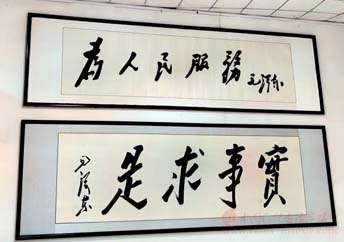 为人民服務 毛澤东
實事求是 毛泽东